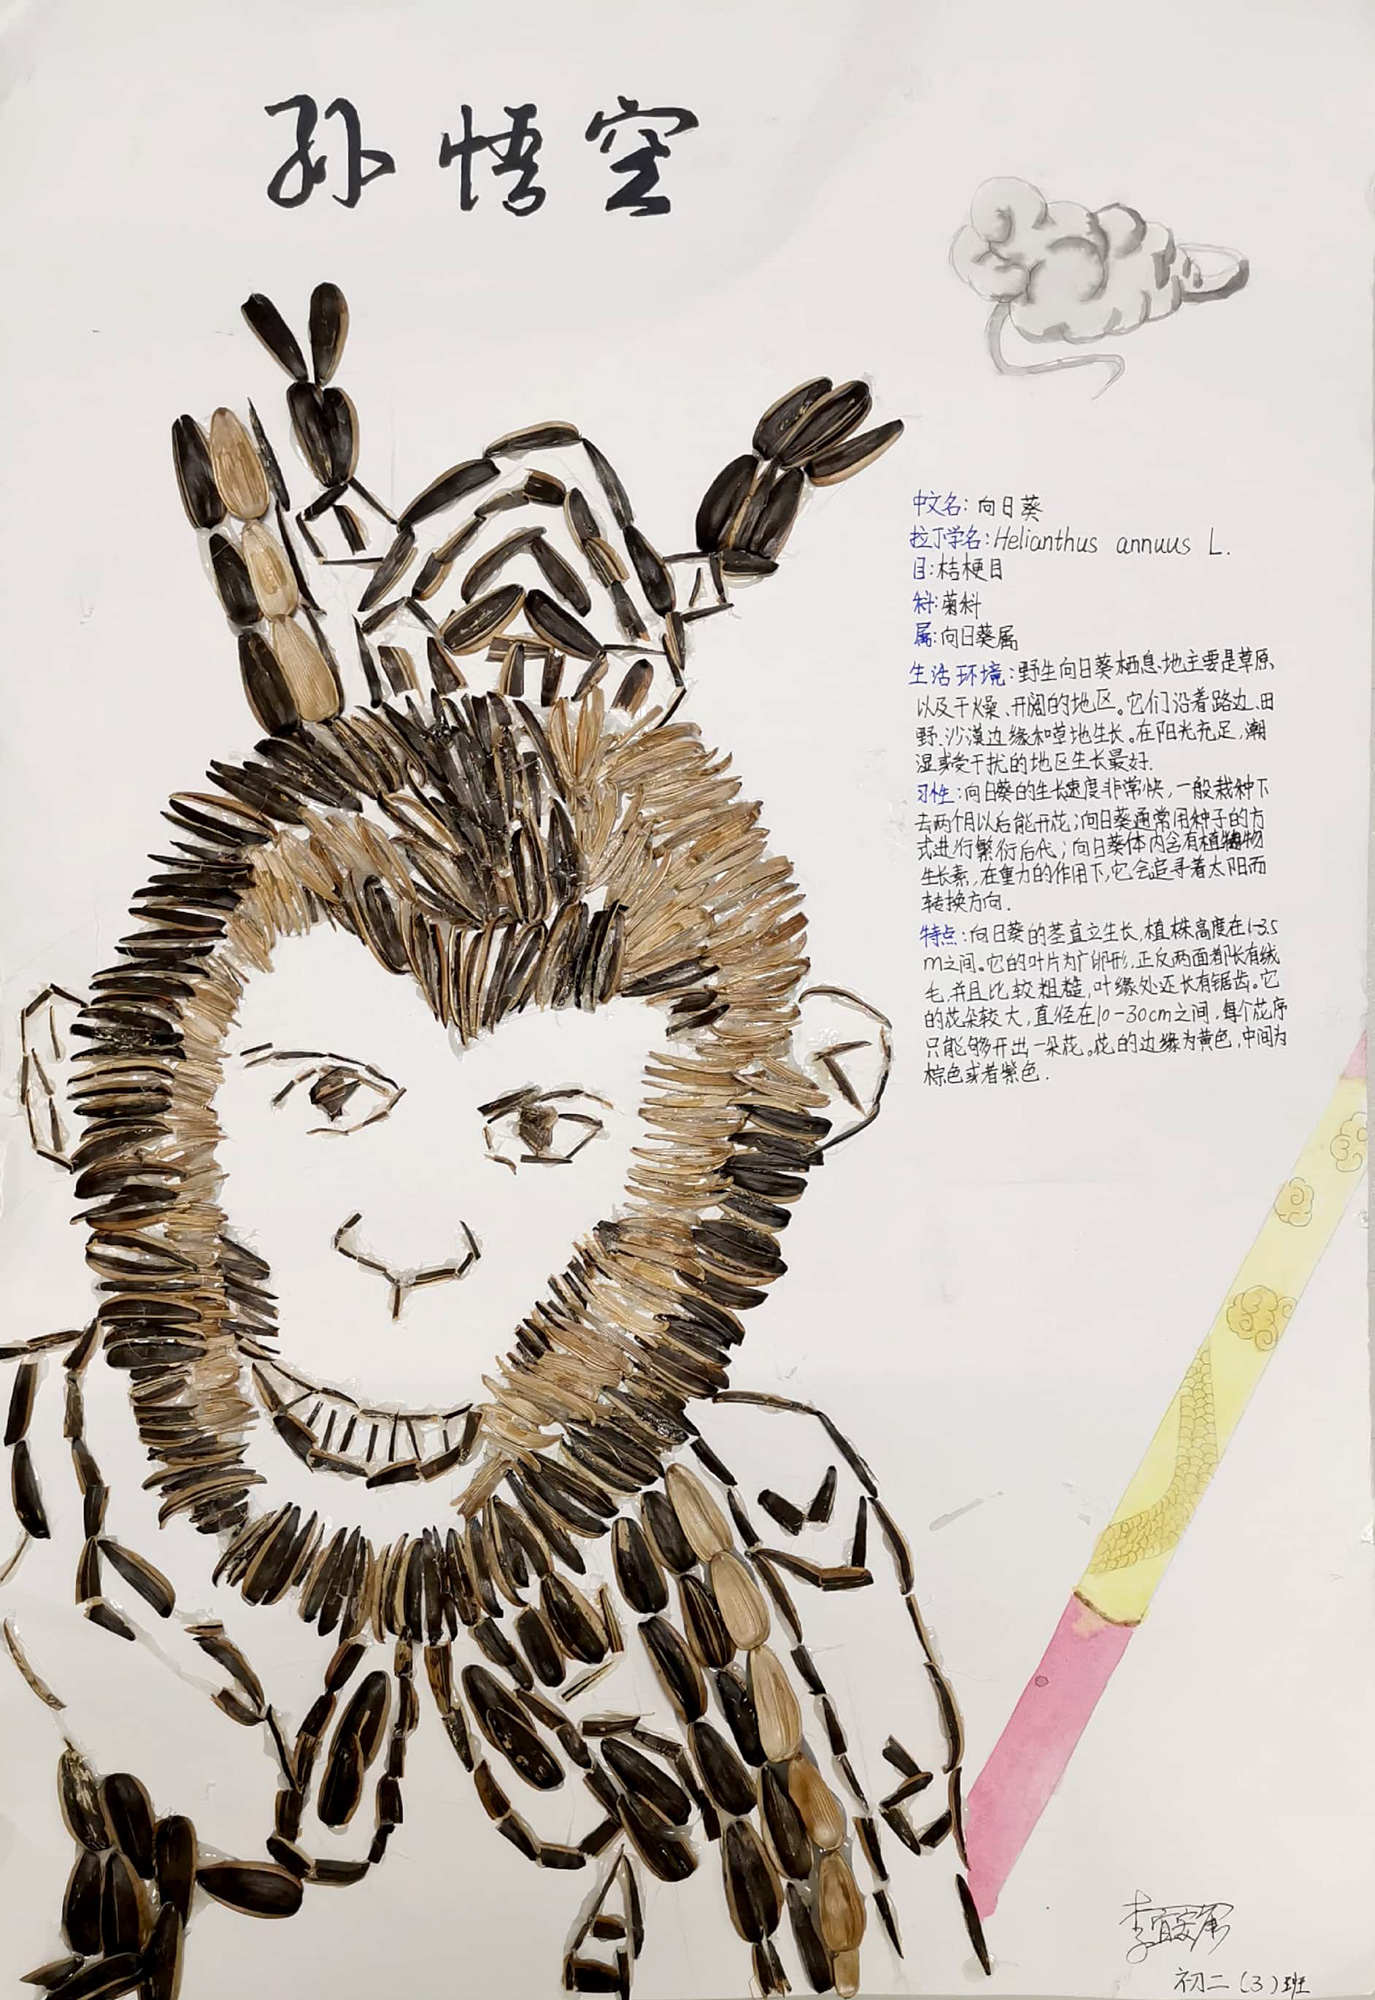 孙悟空
中文名：向日葵
拉丁学名：Helianthus annuus L.
目：桔梗目
科：菊科
属：向日葵属
生活环境：野生向日葵栖息地主要是草原、
以及干燥、开阔的地区。它们沿着路边、田
野、沙漠边缘和草地生长。在阳光充足，潮
湿或受干扰的地区生长最好．
习性：向日葵的生长速度非常快，一般栽种下
去两个月以后能开花；向日葵通常用种子的方
式进行繁衍后代；向日葵体内含有植物
生长素，在重力的作用下，它会追寻着太阳而
转换方向．
特点：向日葵的茎直立生长，植株高度在1-3.5
m之间。它的叶片为广卵形，正反两面都长有绒
毛，并且比较粗糙，叶缘处还长有锯齿。它
的花朵较大，直径在10-30cm之间，每个花序
只能够开出一朵花。花的边缘为黄色，中间为
棕色或者紫色．
初二（3）班